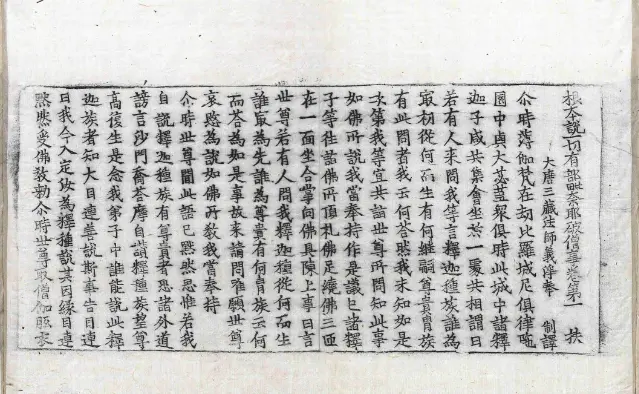 根本說一切有部毗奈耶破僧事卷第一 扶
大唐三藏法師義淨奉 制譯
尒時薄伽梵在劫比羅城尼俱律陁
園中與大苾蒭衆俱時此城中諸釋
迦子咸共集會坐於一處共相謂曰
若有人来問我等言釋迦種族誰為
冣初從何而生有何継嗣尊貴胄族
有此問者我云何荅然我未知如是
次第我等宜共詣世尊所問知此事
如佛所說我當奉持作是議已諸釋
子等往詣佛所頂礼佛足繞佛三匝
在一面坐合掌向佛具陳上事白言
世尊若有人問我釋迦種從何而生
誰冣為先誰為尊貴有何胄族云何
而荅為如是事故来請問唯願世尊
哀愍為說如佛所教我當奉持
尒時世尊聞此語已默然思惟若我
自說釋迦種族有尊貴者恐諸外道
謗言沙門喬荅摩自讃釋種族望尊
高復生是念我弟子中誰能說此釋
迦族者知大目連善說斯事告目連
曰我今入定汝為釋種說其因緣目連
默然受佛教勑尒時世尊取僧伽胝衣